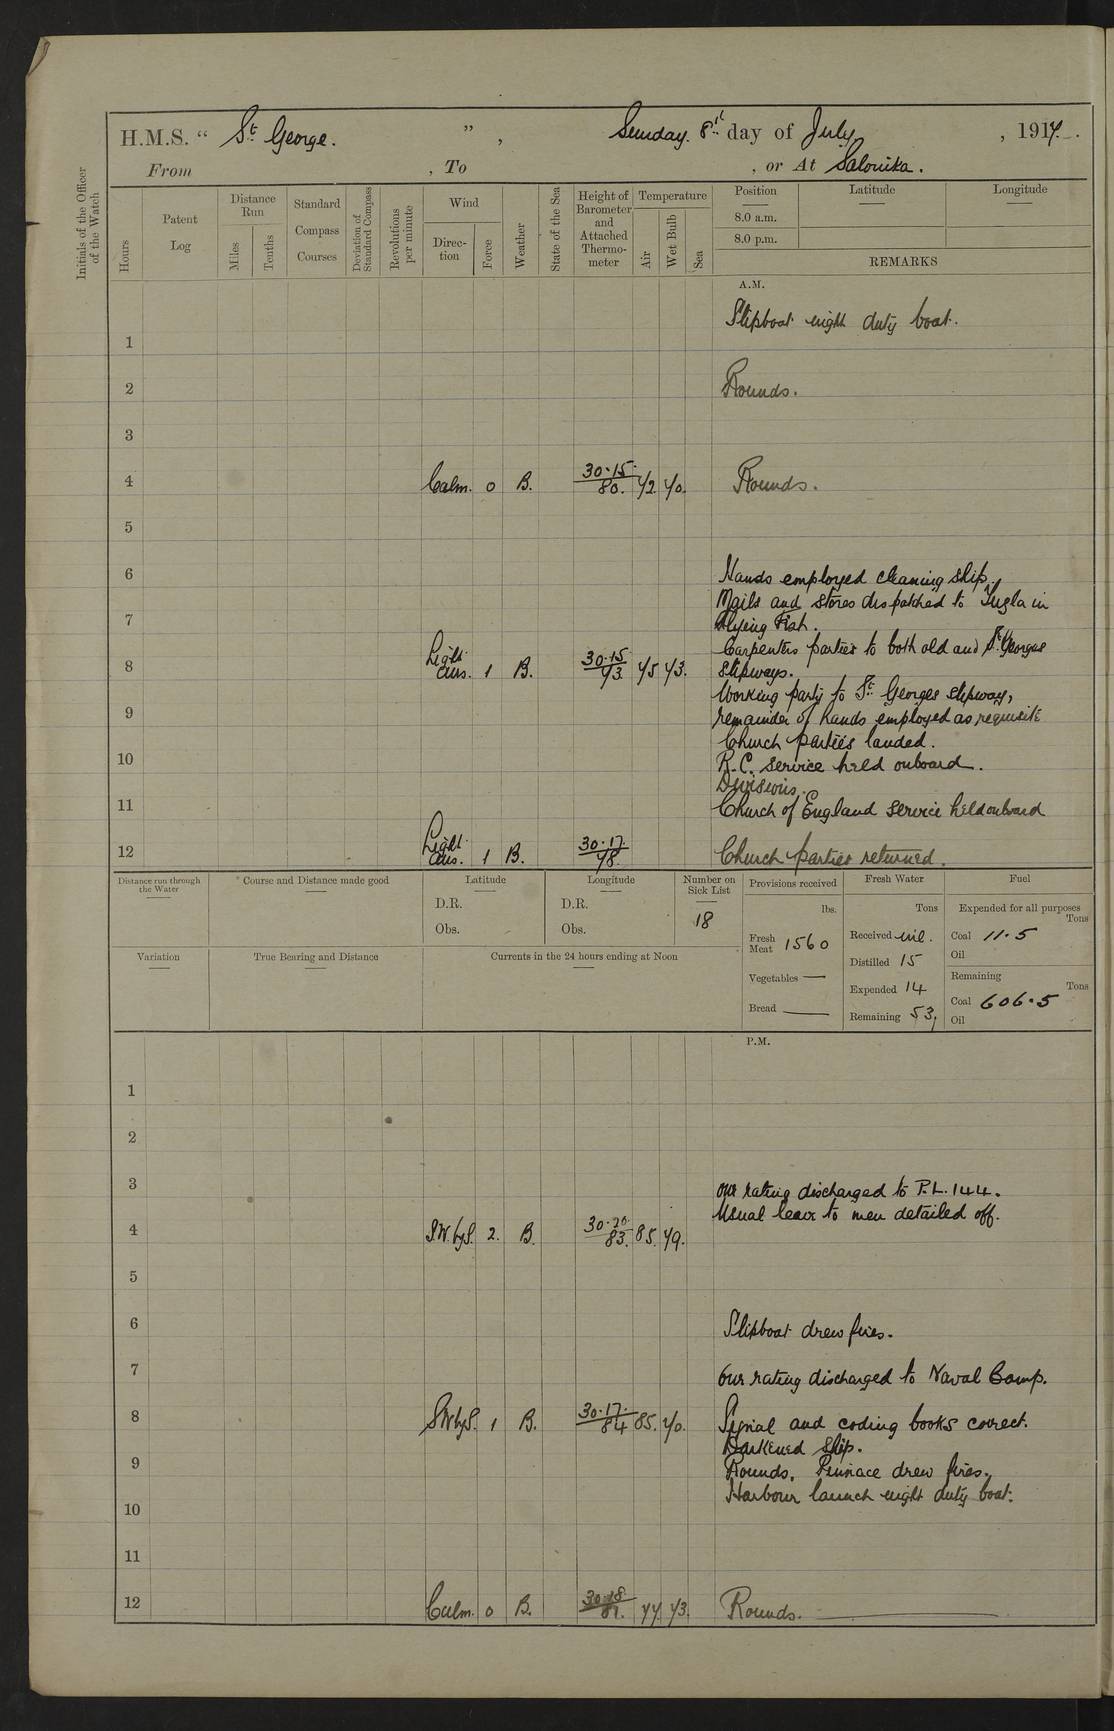 H.M.S. " St George. ", Sunday. 8th day of July, 1917.
From , To , or At Salonika.
Initials of the Officer of the Watch
Hours
Patent Log
Distance Run
Miles
Tenths
Standard Compass Courses
Deviation of Standard Compass
Revolutions per minute
Wind
Direction
Force
Weather
State of the Sea
Height of Barometer and Attached Thermometer
Temperature
Air
Wet Bulb
Sea
Position
Latitude
Longitude
8.0 a.m.
8.0 p.m.
REMARKS
A.M.
Slipboat night duty boat.
1
2 Rounds.
3
4 Calm. 0 B. 30.15 80. 72. 70. Rounds.
5
6 Hands employed cleaning ship.
Mails and stores dispatched to in
7 Flying Fish.
Carpenters parties to both old and St. Georges
8 Light airs. 1 B. 30.15 73 75 73. slipways.
Working party to St. Georges slipway,
9 remainder of hands employed as requisite
Church parties landed.
10 R.C. service held onboard.
Divisions.
11 Church of England service held onboard
12 Light airs. 1 B. 30.17. 78. Church parties returned.
Distance run through the Water
* Course and Distance made good
Latitude
D.R.
Obs.
Longitude
D.R.
Obs.
Number on Sick List
18
Provisions received
lbs.
Fresh Meat 1560
Vegetables —
Bread —
Fresh Water
Tons
Received nil.
Distilled 15
Expended 14
Remaining 53,
Fuel
Expended for all purposes
Tons
Coal 11.5
Oil
Remaining
Tons
Coal 606.5
Oil
Variation
True Bearing and Distance
Currents in the 24 hours ending at Noon
P.M.
1
2
3 One rating discharged to P.L. 144.
Usual leave to men detailed off.
4 SW.byS. 2. B. 30.20 83. 85. 79.
5
6 Slipboat drew fires.
7 One rating discharged to Naval Camp.
8 SWbyS. 1 B. 30.17. 84 85. 70. Signal and coding books correct.
Darkened ship.
9 Rounds. Pinnace drew fires.
Harbour launch night duty boat.
10
11
12 Calm. 0 B. 30.18. 81. 77. 73. Rounds.